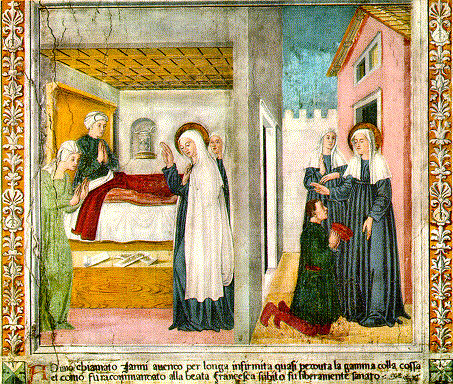 chiamato Janni avenco per longa infirmita quasi perduta la gamma colla cossa
et como fu racommannato alla beata Francesca subito fu liberamente sanato